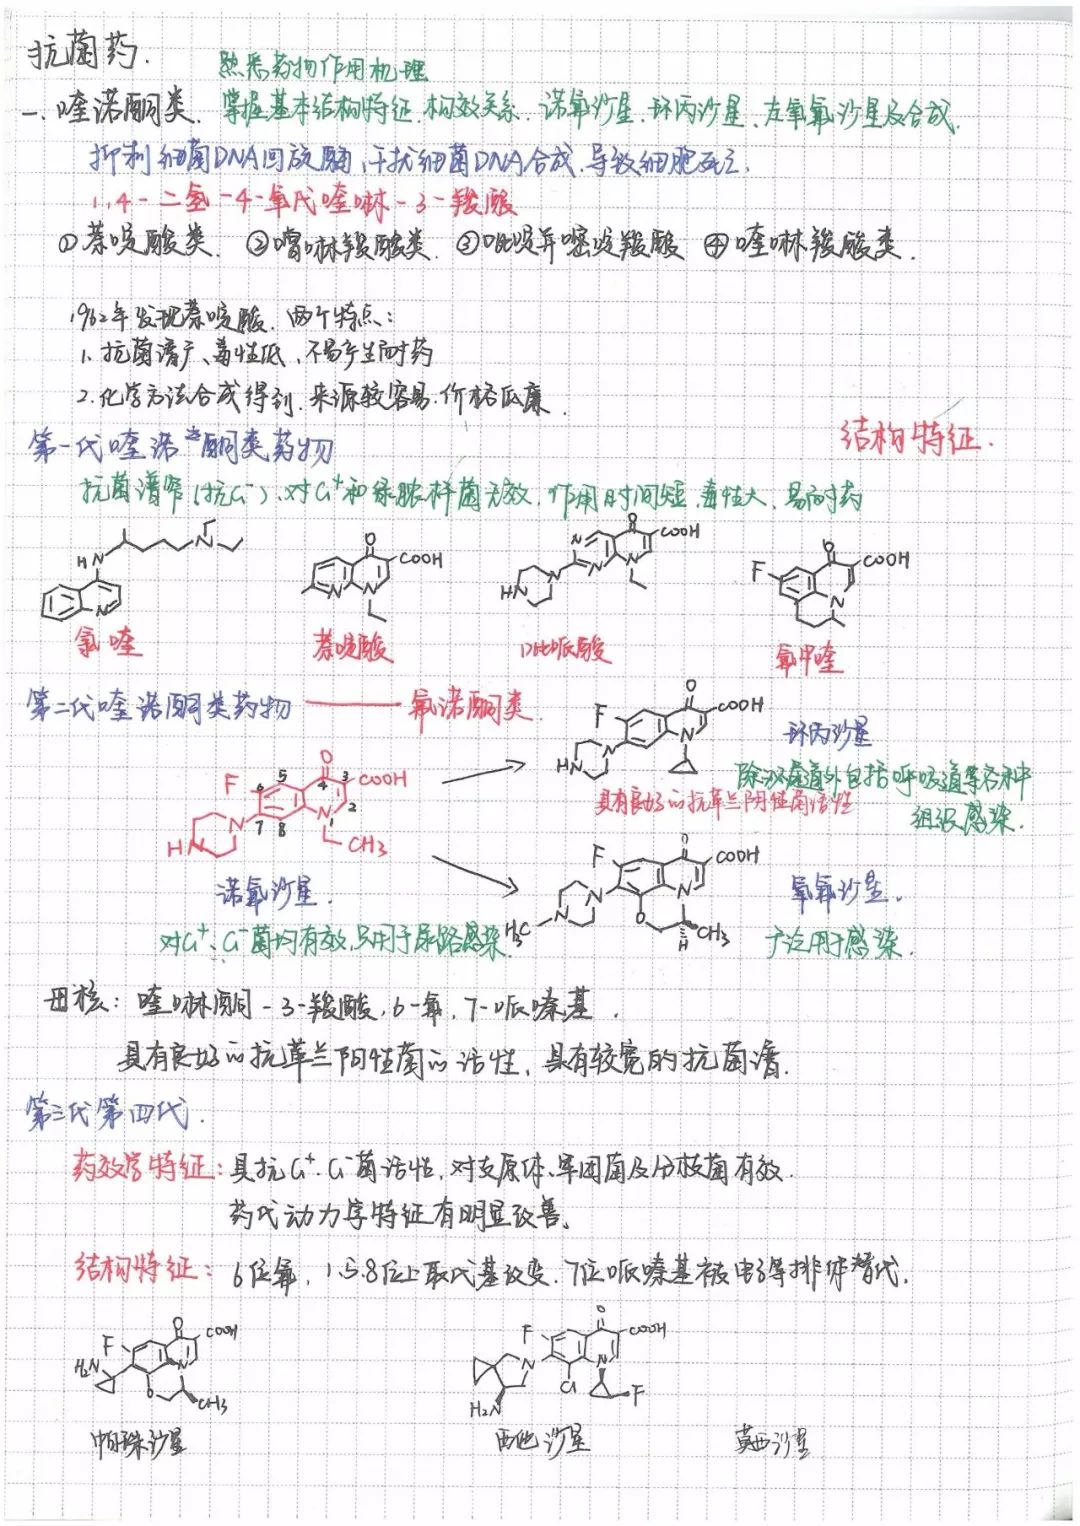 抗菌药.
熟悉药物作用机理
一、喹诺酮类. 掌握基本结构特征、构效关系、诺氟沙星、环丙沙星、左氧氟沙星及合成.
抑制细菌DNA回旋酶,干扰细菌DNA合成.导致细胞死亡.
1,4-二氢-4-氧代喹啉-3-羧酸
①萘啶酸类. ②噌啉羧酸类. ③吡啶并嘧啶羧酸 ④喹啉羧酸类.
1962年发现萘啶酸. 两个特点:
1. 抗菌谱广、毒性低、不易产生耐药
2. 化学方法合成得到. 来源较容易.价格低廉.
第一代喹诺酮类药物
结构特征.
抗菌谱窄(抗G-).对G+和绿脓杆菌无效.作用时间短.毒性大、易耐药
N
H N
N
氯喹
O
COOH
N
N
萘啶酸
O
COOH
N
N
N
N
HN
吡哌酸
O
COOH
F
N
氟甲喹
第二代喹诺酮类药物 —— 氟诺酮类.
O
COOH
F
N
N
HN
环丙沙星
除尿道外包括呼吸道等各种
组织感染.
具有良好的抗革兰阴性菌活性
O
F 6 5 4 3 COOH
N 7 8 N 1 2
HN
CH3
诺氟沙星.
对G+、G-菌均有效,只用于尿路感染.
O
COOH
F
N
N
N
H3C
O
H
CH3
氧氟沙星.
广泛用于感染.
母核: 喹啉酮-3-羧酸,6-氟,7-哌嗪基.
具有良好的抗革兰阴性菌的活性, 具有较宽的抗菌谱.
第三代第四代.
药效学特征: 具抗G+.G-菌活性,对支原体、军团菌及分枝菌有效.
药代动力学特征有明显改善.
结构特征: 6位氟, 1.5.8位上取代基改变.7位哌嗪基被电子等排体替代.
O
COOH
F
H2N
N
O
CH3
帕珠沙星
O
COOH
F
N
N
Cl
F
H2N
西他沙星
莫西沙星